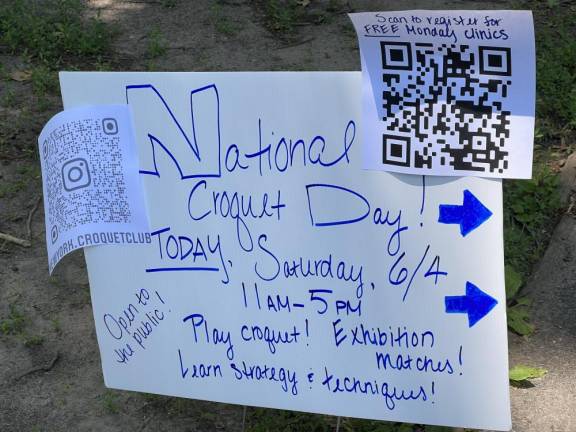 Scan to register for
FREE Monday clinics
National
Croquet Day!
TODAY, Saturday, 6/4
11AM-5PM
Open to
the public!
Play croquet! Exhibition
matches!
Learn strategy & techniques!